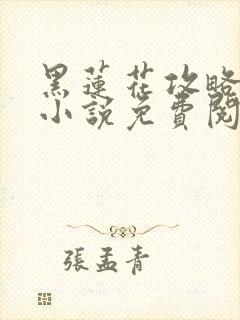 黑蓮花攻略
小說免費閱
張孟青